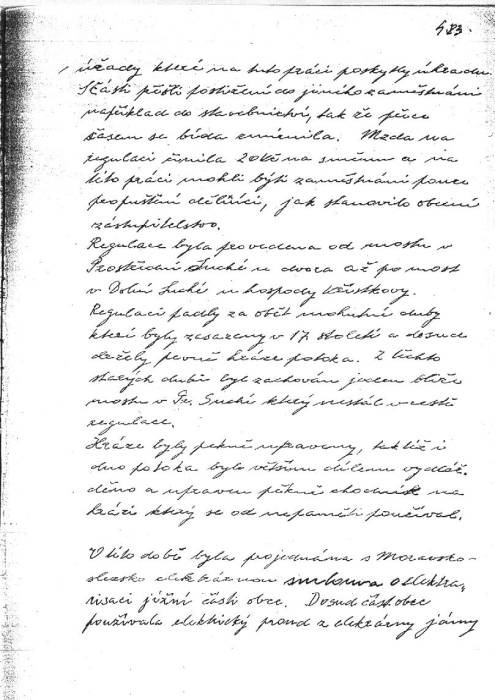 483.
úřady které na tuto práci poskytly úhradu
Z části přišli postižení do jiného zaměstnání
například do stavebnictví, tak že přece
časem se bída zmírnila. Mzda na
regulaci činila 20 Kč na směnu a na
této práci mohli býti zaměstnáni pouze
propuštění dělníci, jak stanovilo obecní
zastupitelstvo.
Regulace byla provedena od mostu v
Prostřední Suché u dvora až po most
v Dolní Suché u hospody
Regulaci padly za oběť mohutné duby
které byly zasazeny v 17 století a dosud
držely pevně hráze potoka. Z těchto
starých dubů byl zachován jeden blíže
mostu v Pr. Suché který nestál v cestě
regulace.
Hráze byly pěkně upraveny, taktéž i
dno potoka bylo větším dílem vydláž-
děno a upraven pěkně chodník na
hrázi který se od nepaměti používal.
V této době byla projednána s Moravsko-
slezskou elektrárnou smlouva o elektra-
risaci jižní části obce. Dosud část obce
používala elektrický proud z elektrárny jámy